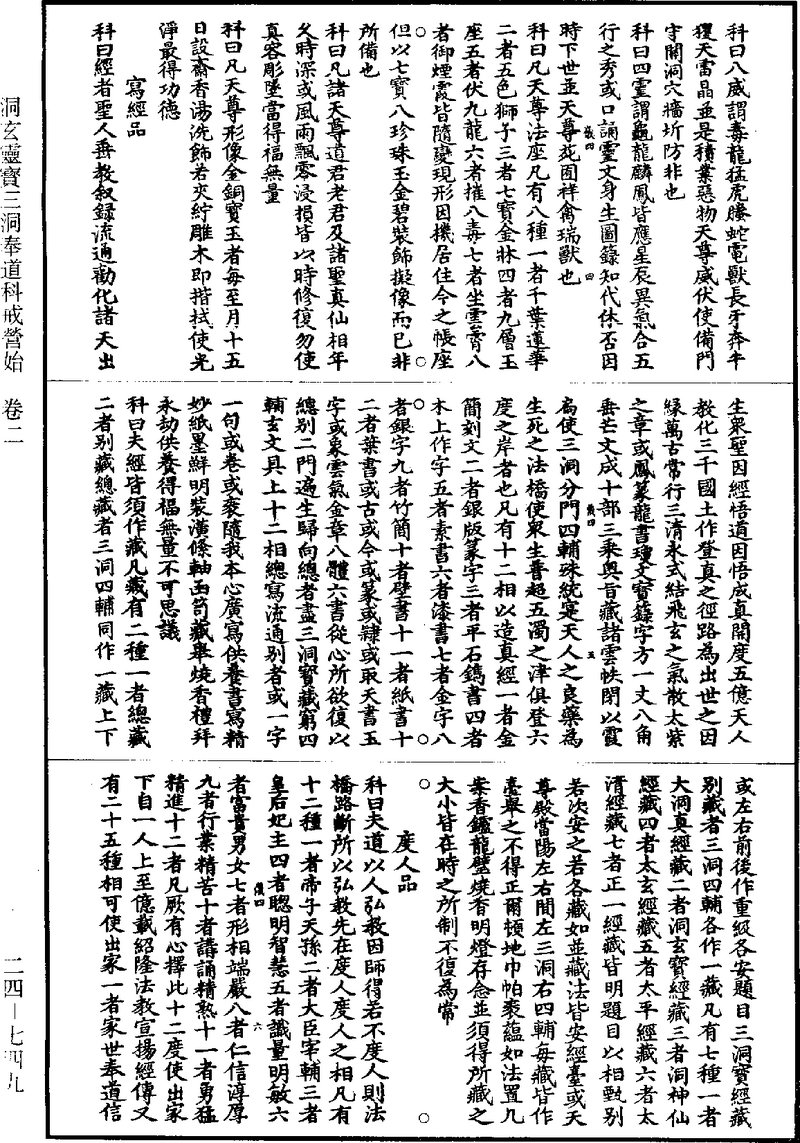 科曰八威謂毒龍猛虎螣蛇電獸長牙奔牛
玃天雷晶並是積葉惡物天尊威伏使備門
守關洞穴牆圻防非也
科曰四靈謂龜龍麟鳳皆應星辰異氣合五
行之秀或口誦靈文身生圖籙知代休否因
時下世並天尊苑囿祥禽瑞獸也
科曰凡天尊法座凡有八種一者千葉蓮華
二者五色獅子三者七寶金牀四者九層玉
座五者伏九龍六者摧八毒七者坐雲霄八
者御煙霞皆隨變現形因機居住今之帳座
但以七寶八珍珠玉金碧裝飾擬像而已非
所備也
科曰凡諸天尊道君老君及諸聖真仙相年
久時深或風雨飄零浸損皆以時修復勿使
真容彫墜當得福無量
科曰凡天尊形像金銅寶玉者每至月十五
日設齋香湯洗飾若夾紵雕木即揩拭使光
淨最得功德
寫經品
科曰經者聖人垂教叙錄流通勸化諸天出
生眾聖因經悟道因悟成真開度五億天人
教化三千國土作登真之徑路為出世之因
緣萬古常行三清永式結飛玄之氣散太紫
之章或鳳篆龍書瓊文寶籙字方一丈八角
垂芒文成十部三乘奧旨藏諸雲帙閉以霞
扃使三洞分門四輔殊統寔天人之良藥為
生死之法橋使眾生普超五濁之津俱登六
度之岸者也凡有十二相以造真經一者金
簡刻文二者銀版篆字三者平石鐫書四者
木上作字五者素書六者漆書七者金字八
者銀字九者竹簡十者壁書十一者紙書十
二者葉書或古或今或篆或隸或取天書玉
字或象雲氣金章八體六書從心所欲復以
總別二門遍生歸向總者盡三洞寶藏窮四
輔玄文具上十二相總寫流通別者或一字
一句或卷或袠隨我本心廣寫供養書寫精
妙紙墨鮮明裝潢條軸函笥藏舉燒香禮拜
永劫供養得福無量不可思議
科曰夫經皆須作藏凡藏有二種一者總藏
二者別藏總藏者三洞四輔同作一藏上下
或左右前後作重級各安題目三洞寶經藏
別藏者三洞四輔各作一藏凡有七種一者
大洞真經藏二者洞玄寶經藏三者洞神仙
經藏四者太玄經藏五者太平經藏六者太
清經藏七者正一經藏皆明題目以相甄別
若次安之若各藏如並藏法皆安經臺或天
尊殿當陽左右間左三洞右四輔每藏皆作
臺舉之不得正爾頓地巾帕袠蘊如法置几
案香鑪龍壁燒香明燈存念並須得所藏之
大小皆在時之所制不復為常
度人品
科曰夫道以人弘教因師得若不度人則法
橋路斷所以弘教先在度人度人之相凡有
十二種一者帝子天孫二者大臣宰輔三者
皇后妃主四者聰明智慧五者識量明敏六
者富貴男女七者形相端嚴八者仁信淳厚
九者行業精苦十者講誦精熟十一者勇猛
精進十二者凡厥有心擇此十二度使出家
下自一人上至億載紹隆法教宣揚經傳又
有二十五種相可使出家一者家世奉道信
洞玄靈寶三洞奉道科戒營始　卷二
二四—七四九